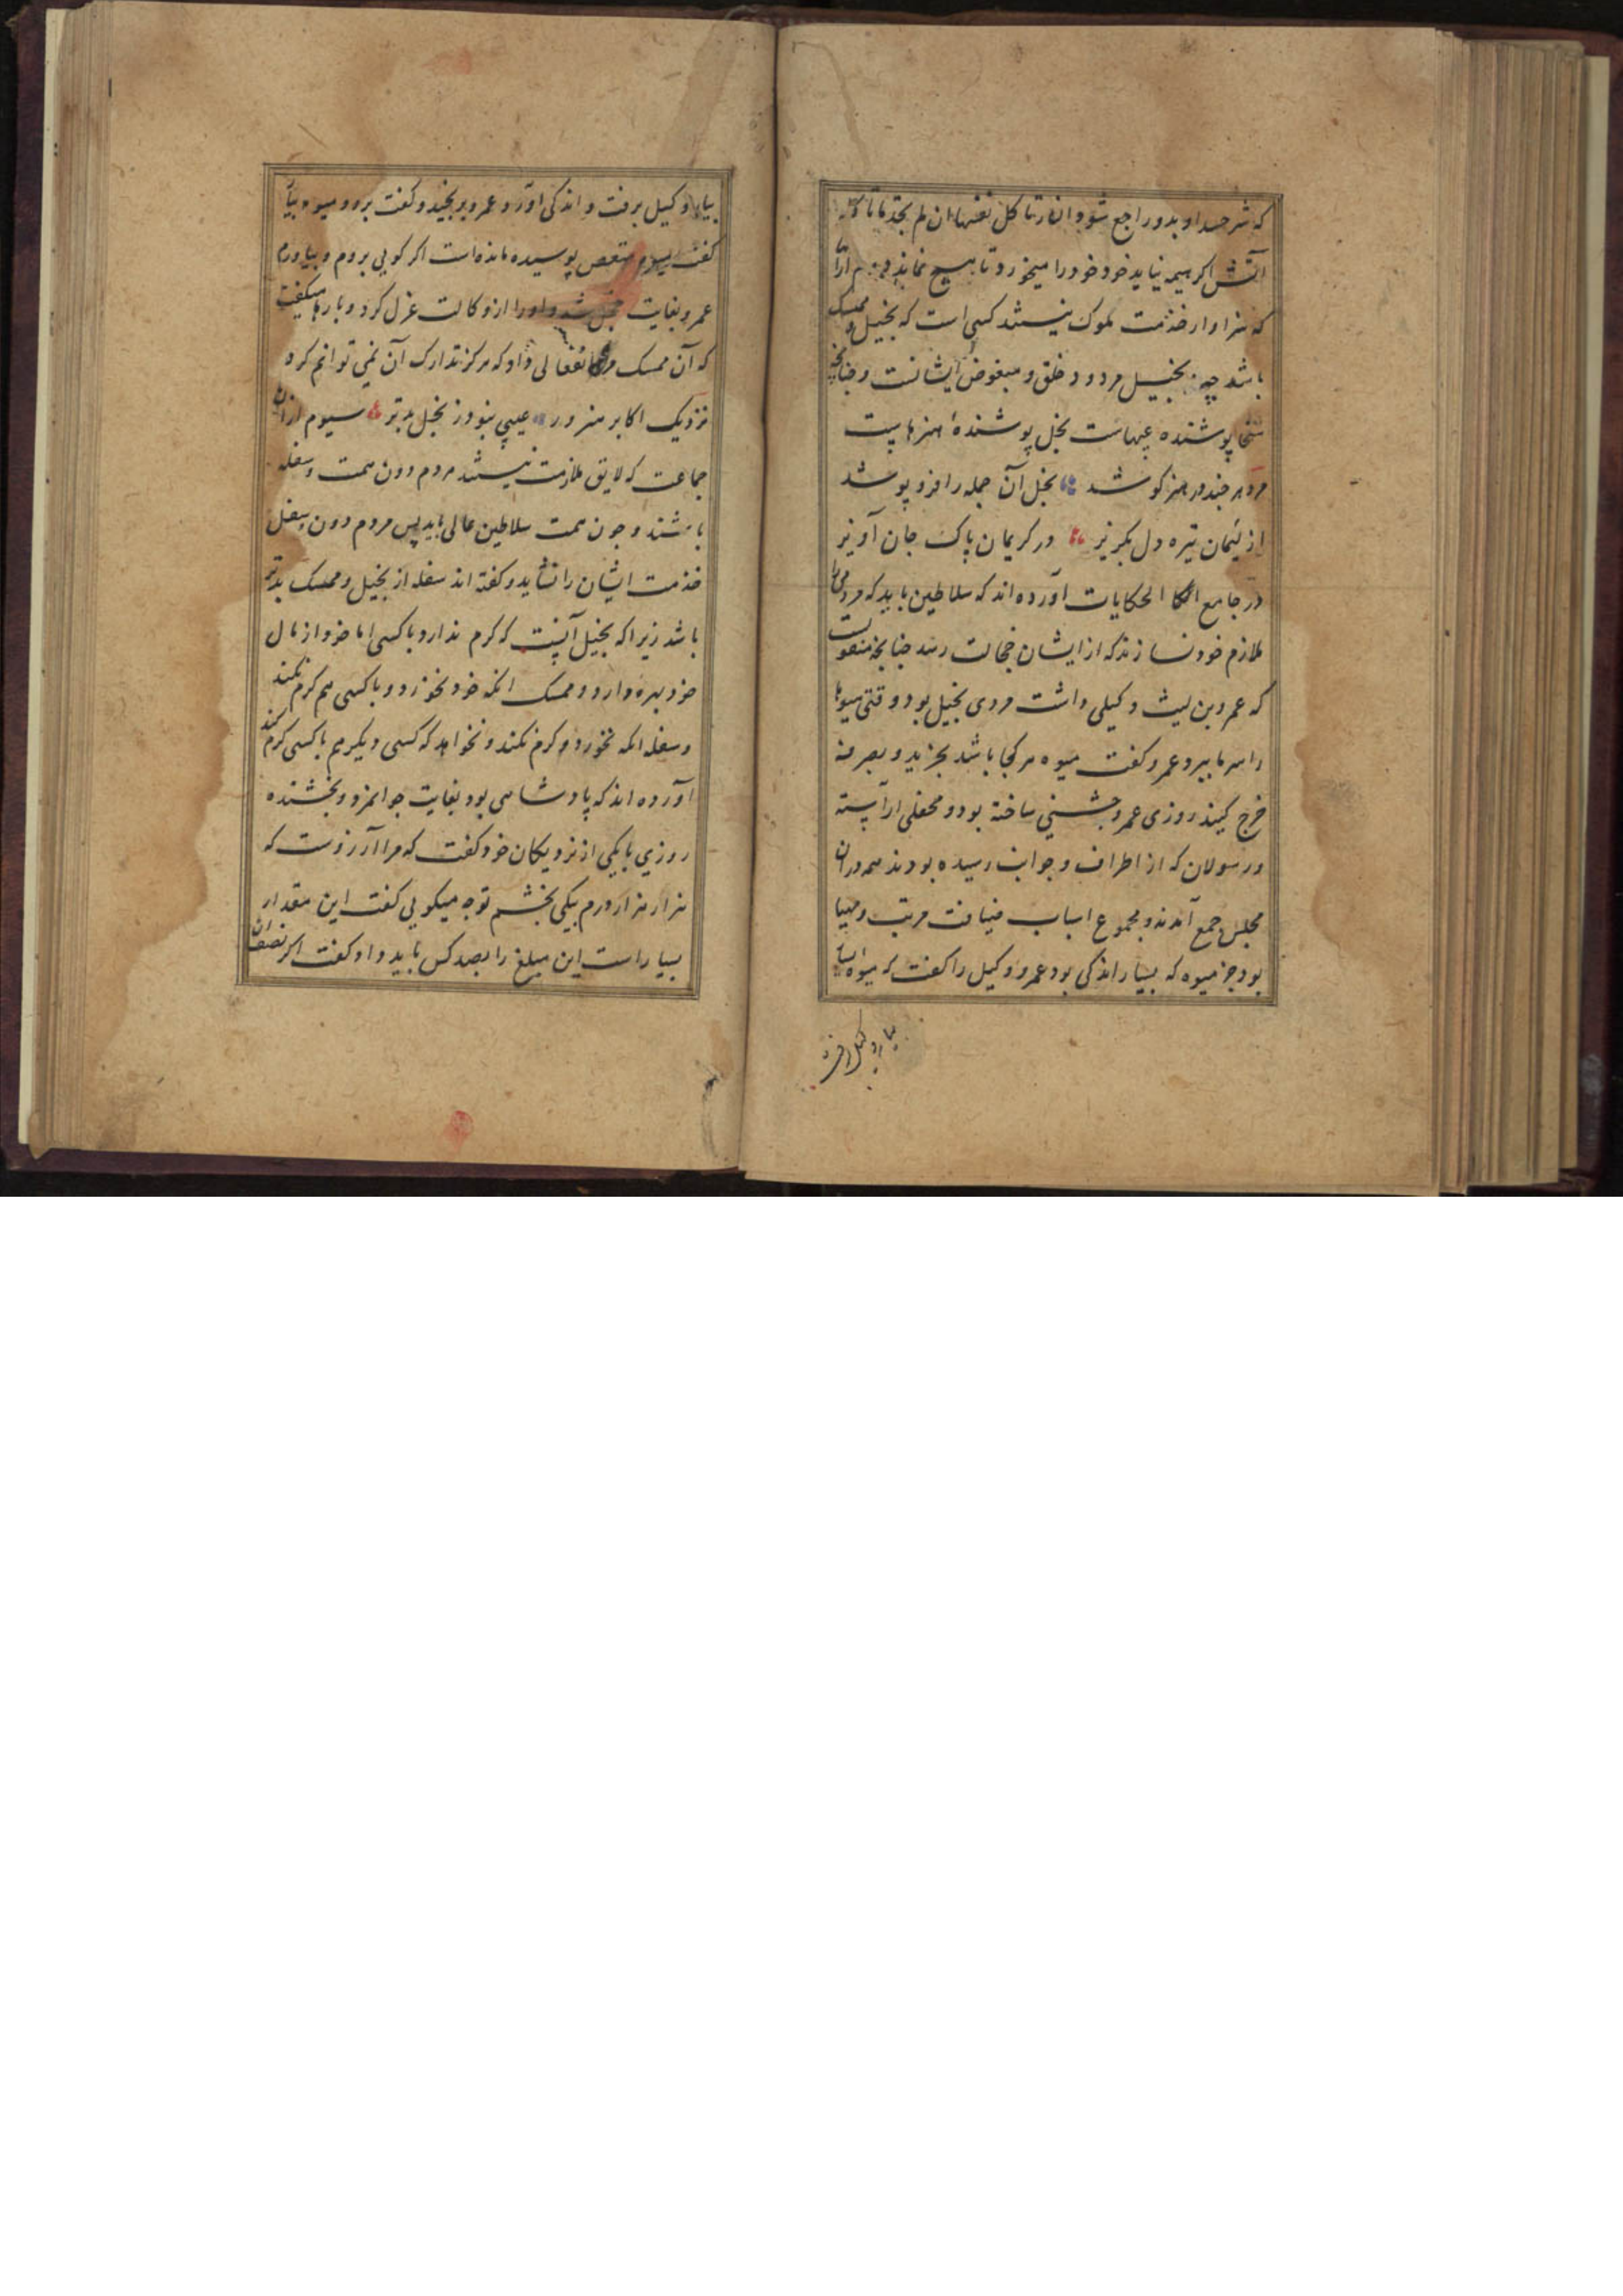 که شر حسد او بدو راجع شود النار تاکل نفسها ان لم تجد ما تاکله
آتش اگر هیمه نیابد خود خود را میخورد تا هیچ نماند دویم ازان
که سزاوار خدمت ملوک نیستند کسی است که بخیل و ممسک
باشد چه بخیل مردود خلق و مبغوض ایشانست و چنانچه
سخا پوشنده عیبهاست بخل پوشندهٔ هنرهاست
مرد هر چند در هنر کوشد بخل آن جمله را فرو پوشد
از لئیمان تیره دل بگریز در کریمان پاک جان آویز
در جامع الحکایات آورده اند که سلاطین باید که مردمی را
ملازم خود نسازند که از ایشان خجالت رسد چنانچه منقولست
که عمرو بن لیث وکیلی داشت مردی بخیل بود وقتی میوها
را سرما ببرد عمرو گفت میوه هر کجا باشد بخرید و بصرفه
خرج کنید روزی عمرو جشنی ساخته بود و محفلی آراسته
و رسولان که از اطراف و جوانب رسیده بودند همه دران
مجلس جمع آمدند و مجموع اسباب ضیافت مرتب و مهیا
بود جز میوه که بسیار اندکی بود عمرو وکیل را گفت که میوه
بیار وکیل برفت
بیار وکیل برفت و اندکی آورد عمرو برنجید و گفت برو و میوه بیار
گفت پوسیده مانده است اگر گویی بروم و بیاورم
عمرو بغایت خجل شد و او را از وکالت عزل کرد و بارها میگفت
که آن ممسک مرا انفعالی داد که هرگز تدارک آن نمی توانم کرد
نزدیک اکابر هنرور عیبی نبود ز بخل بدتر سیوم ازان
جماعت که لایق ملازمت نیستند مردم دون همت و سفله
باشند و چون همت سلاطین عالی باید پس مردم دون و سفله
خدمت ایشان را نشاید و گفته اند سفله از بخیل و ممسک بدتر
باشد زیرا که بخیل آنست که کرم ندارد با کسی اما خود از مال
خود بهره دارد و ممسک انکه خود نخورد و با کسی هم کرم نکند
و سفله انکه نخورد و کرم نکند و نخواهد که کسی دیگر هم با کسی کرم کند
آورده اند که پادشاهی بود بغایت جوانمرد و بخشنده
روزی با یکی از نزدیکان خود گفت که مرا آرزوست که
هزار هزار درم بیکی بخشم تو چه میگویی گفت این مقدار
بسیار است این مبلغ را بصد کس باید داد گفت اگر نصف آن